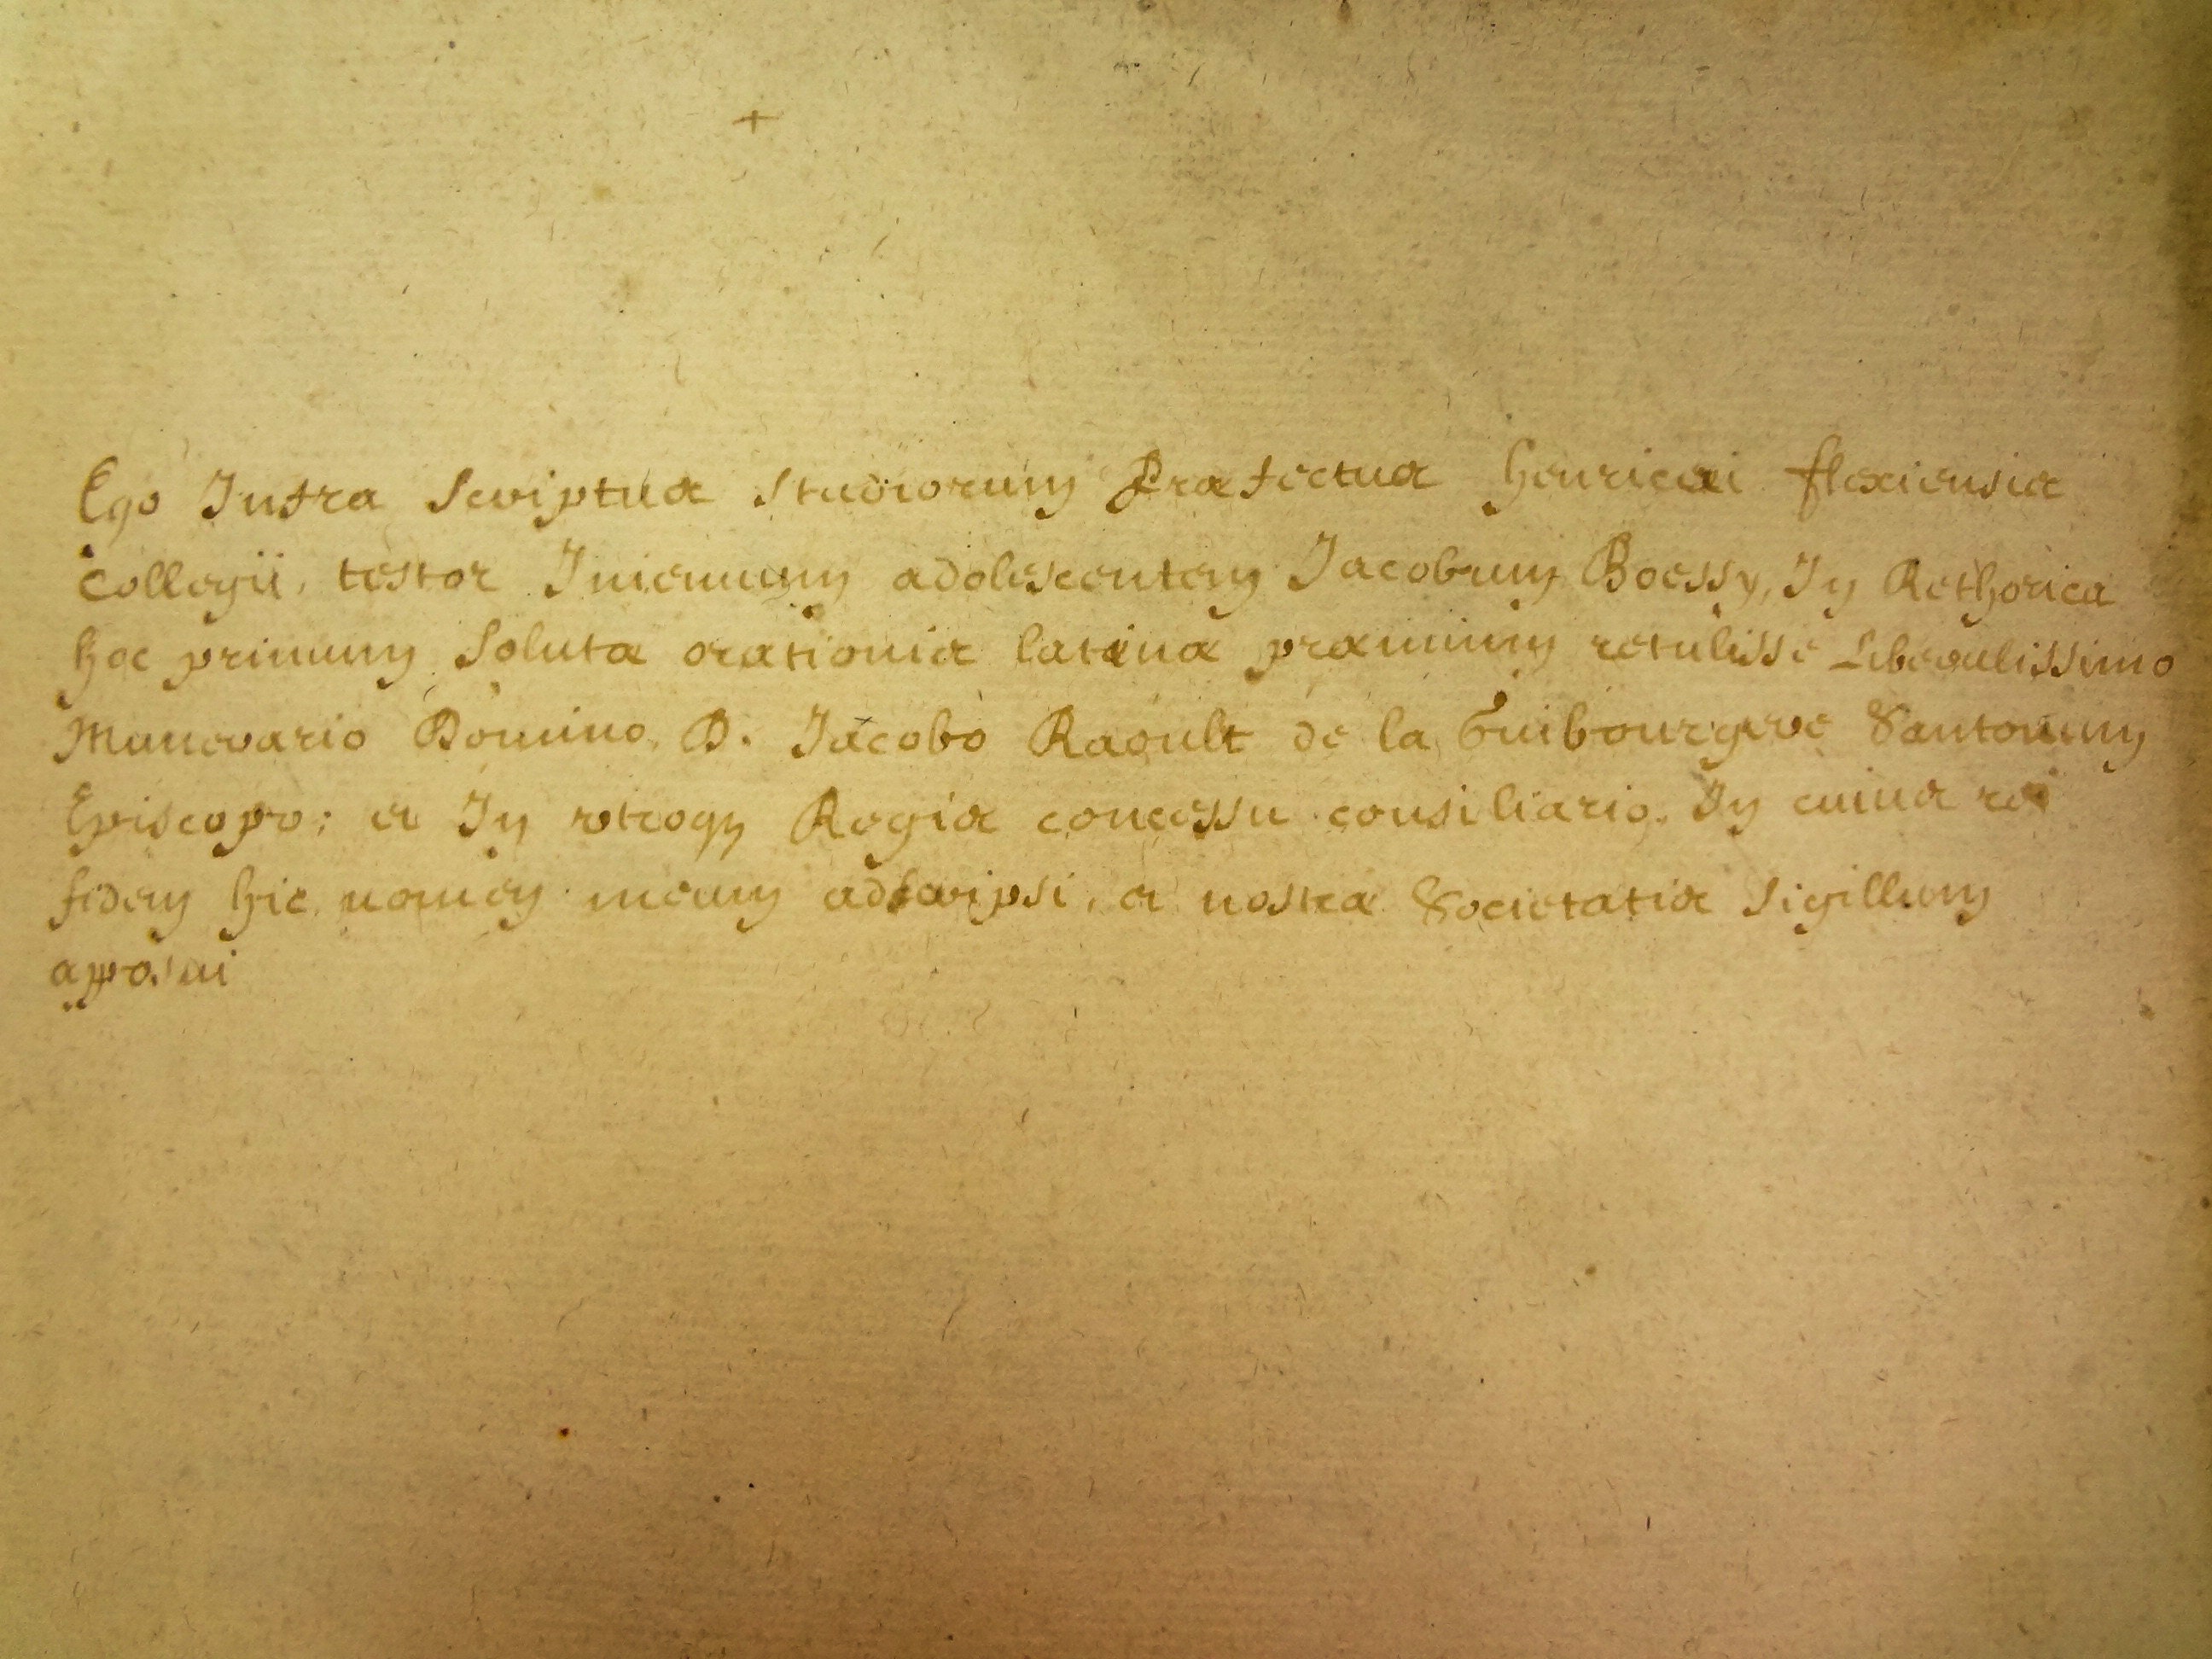 +
Ego Infra Scriptus Studiorum Præfectus Henricæi flexiensis
Collegii, testor Iniennum adolescentem Jacobum Boessy, In Rethorica
hoc primum Soluta orationis latina præmium retulisse Liberalissimo
Munerario Domino, D. Jacobo Raoult de la Guibourgere Santonum
Episcopo; et In utroq; Regis concessu consiliario. In cuius rei
fidem hic nomen meum adscripsi, et nostra Societatis Sigillum
apposui